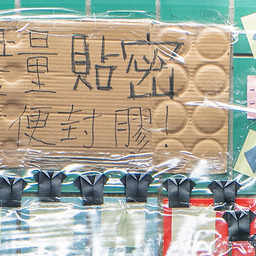 量貼密
便封膠!